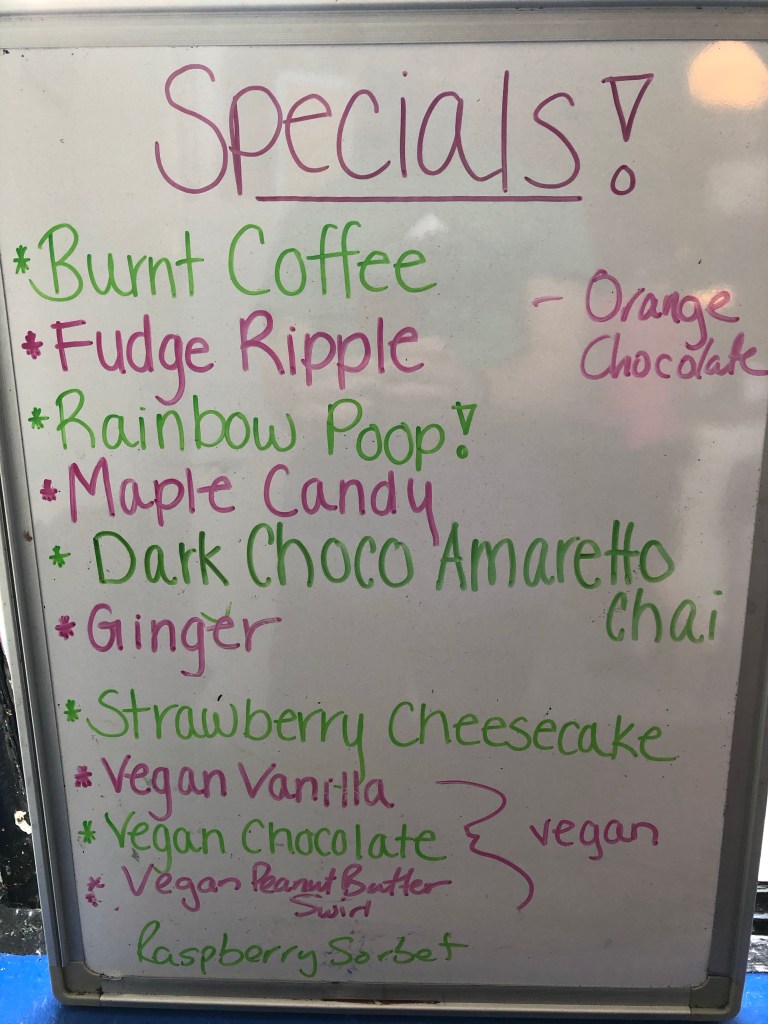 Specials!
*Burnt Coffee
- Orange
Chocolate
*Fudge Ripple
*Rainbow Poop!
*Maple Candy
* Dark Choco Amaretto
Chai
*Ginger
*Strawberry Cheesecake
*Vegan Vanilla
*Vegan Chocolate
vegan
* Vegan Peanut Butter
Swirl
Raspberry Sorbet